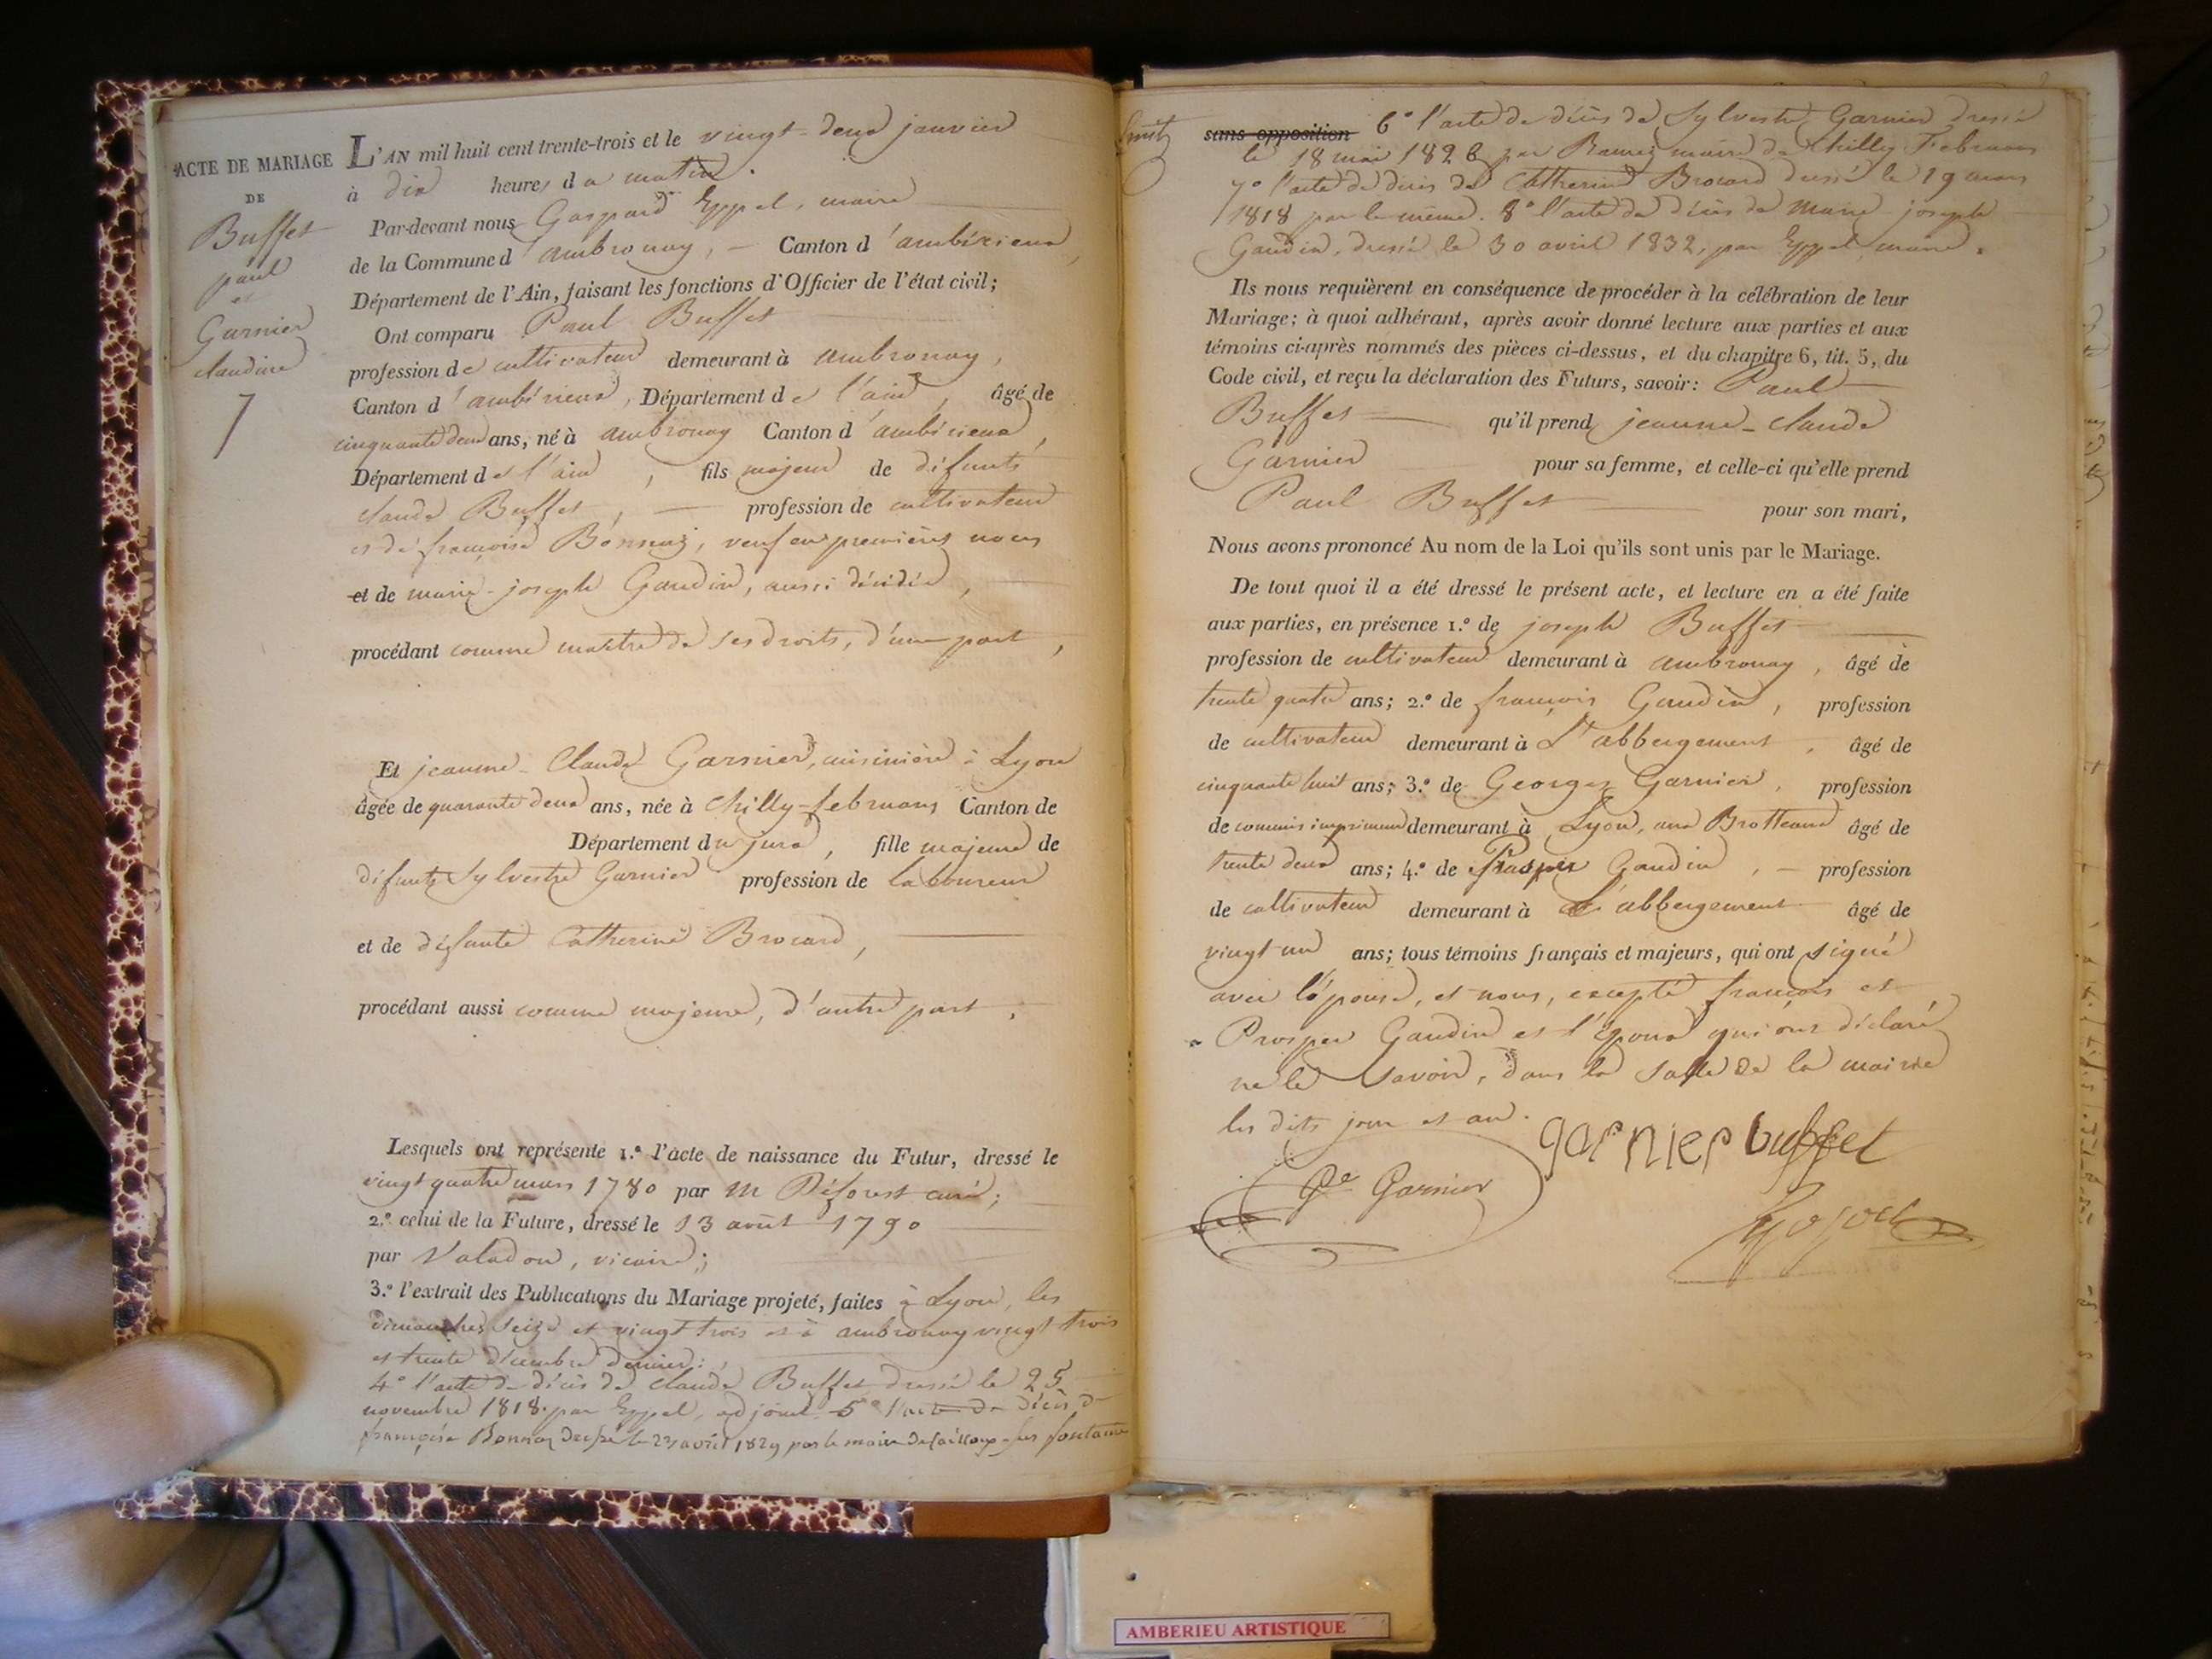 ACTE DE MARIAGE
DE
Buffet
paul
et
Garnier
claudine
7
L'AN mil huit cent trente-trois et le vingt-deux janvier
à dix heures du matin.
Par-devant nous Gaspard Eyppel, maire
de la Commune d'ambronay, Canton d'ambérieux,
Département de l'Ain, faisant les fonctions d'Officier de l'état civil;
Ont comparu Paul Buffet
profession de cultivateur demeurant à ambronay,
Canton d'ambérieux, Département de l'ain, âgé de
cinquante deux ans, né à ambronay Canton d'ambérieux,
Département de l'ain, fils majeur de défunts
claude Buffet, profession de cultivateur
et de françoise Bonnaz, veuf en premières noces
et de marie-joseph Gaudin, aussi décédée,
procédant comme maître de ses droits, d'une part,
Et jeanne-Claude Garnier, cuisinière à Lyon
âgée de quarante deux ans, née à Chilly-febmans Canton de
Département du jura, fille majeure de
défunts Sylvestre Garnier profession de laboureur
et de défunte Catherine Brocard,
procédant aussi comme majeure, d'autre part,
Lesquels ont représenté 1.° l'acte de naissance du Futur, dressé le
vingt quatre mars 1780 par m Déforest curé;
2.° celui de la Future, dressé le 13 août 1790
par Valadon, vicaire;
3.° l'extrait des Publications du Mariage projeté, faites à Lyon, les
dimanches seize et vingt trois et à ambronay vingt trois
et trente décembre dernier;
4° l'acte de décès de claude Buffet dressé le 25
novembre 1818 par Eyppel, adjoint 5° l'acte de décès de
françoise Bonnaz dressé le 23 avril 1829 par le maire de fontaine
sans opposition 6° l'acte de décès de Sylvestre Garnier dressé
le 18 mai 1828 par maire de Chilly Febmans
7° l'acte de décès de Catherine Brocard dressé le 19 mars
1818 par le même. 8° l'acte de décès de marie-joseph
Gaudin, dressé le 30 avril 1832, par Eyppel, maire.
Ils nous requièrent en conséquence de procéder à la célébration de leur
Mariage; à quoi adhérant, après avoir donné lecture aux parties et aux
témoins ci-après nommés des pièces ci-dessus, et du chapitre 6, tit. 5, du
Code civil, et reçu la déclaration des Futurs, savoir: Paul
Buffet qu'il prend jeanne-claude
Garnier pour sa femme, et celle-ci qu'elle prend
Paul Buffet pour son mari,
Nous avons prononcé Au nom de la Loi qu'ils sont unis par le Mariage.
De tout quoi il a été dressé le présent acte, et lecture en a été faite
aux parties, en présence 1.° de joseph Buffet
profession de cultivateur demeurant à ambronay, âgé de
trente quatre ans; 2.° de françois Gaudin, profession
de cultivateur demeurant à L'abbergement, âgé de
cinquante huit ans; 3.° de Georges Garnier, profession
de commis imprimeur demeurant à Lyon, aux Brotteaux âgé de
trente deux ans; 4.° de Prosper Gaudin, profession
de cultivateur demeurant à L'abbergement âgé de
vingt un ans; tous témoins français et majeurs, qui ont signé
avec l'épouse, et nous, excepté françois et
Prosper Gaudin et l'époux qui ont déclaré
ne le savoir, dans la salle de la mairie
les dits jour et an.
garnier buffet
Ge Garnier
AMBERIEU ARTISTIQUE